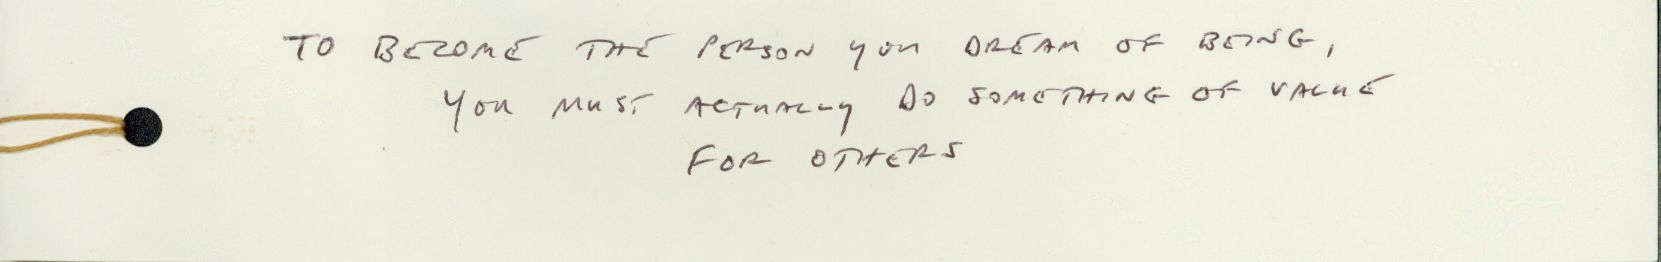 TO BECOME THE PERSON YOU DREAM OF BEING,
YOU MUST ACTUALLY DO SOMETHING OF VALUE
FOR OTHERS